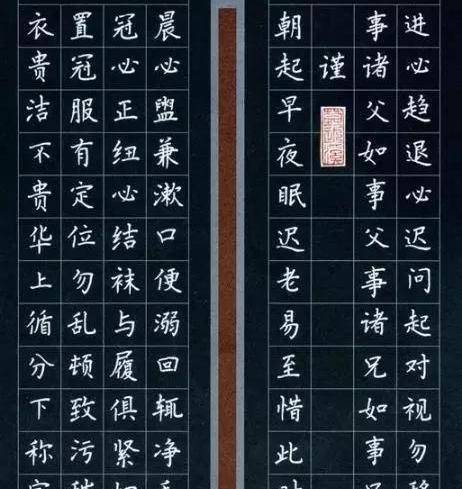 进必趋退必迟问起对视勿
事诸父如事父事诸兄如事
谨
朝起早夜眠迟老易至惜此
晨必盥兼漱口便溺回辄净
冠必正纽必结袜与履俱紧
置冠服有定位勿乱顿致污
衣贵洁不贵华上循分下称